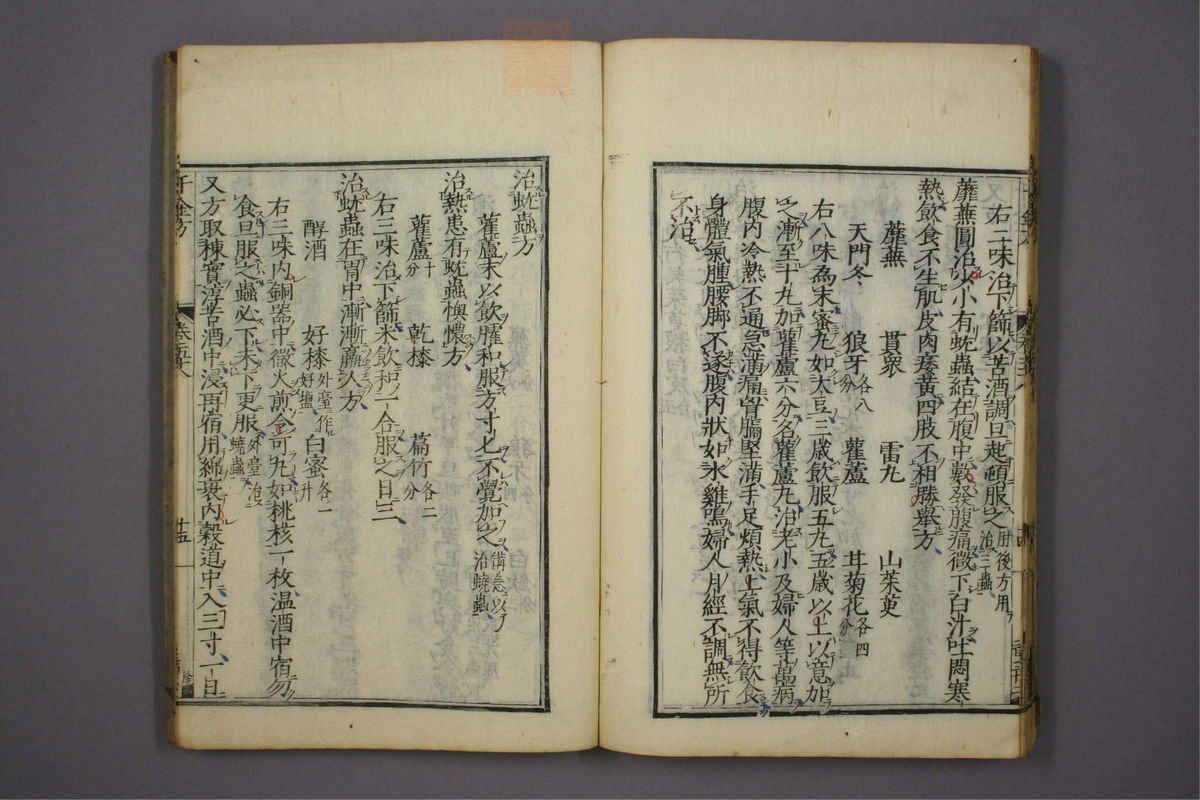 右二味治下篩以苦酒調旦起頓服之肘後方用治三蟲
蘼蕪圓治少小有蚘蟲結在腹中數發腹痛微下白汁吐悶寒
熱飲食不生肌皮肉痿黃四肢不相勝舉方
蘼蕪 貫衆 雷丸 山茱萸
天門冬 狼牙各八分 雚蘆 甘菊花各四分
右八味為末蜜丸如大豆三歲飲服五丸五歲以上以意加
之漸至十丸加雚蘆六分名雚蘆丸治老小及婦人等萬病
腹內冷熱不通急滿痛胷膈堅滿手足煩熱上氣不得飲食
身體氣腫腰脚不遂腹內狀如水雞鳴婦人月經不調無所
不治
治蚘蟲方
雚蘆末以飲臛和服方寸匕不覺加之備急以治蟯蟲
治熱患有蚘蟲懊憹方
雚蘆十分 乾桼 萹竹各二分
右三味治下篩米飲和一合服之日三
治蚘蟲在胃中漸漸羸人方
醇酒 好桼外臺作好鹽 白蜜各一升
右三味內銅器中微火煎令可丸如桃核一枚溫酒中宿勿
食旦服之蟲必下未下更服外臺治蟯蟲
又方取楝實淳苦酒中浸再宿用綿裹內穀道中入三寸一日
千金方
卷五十八
廿五